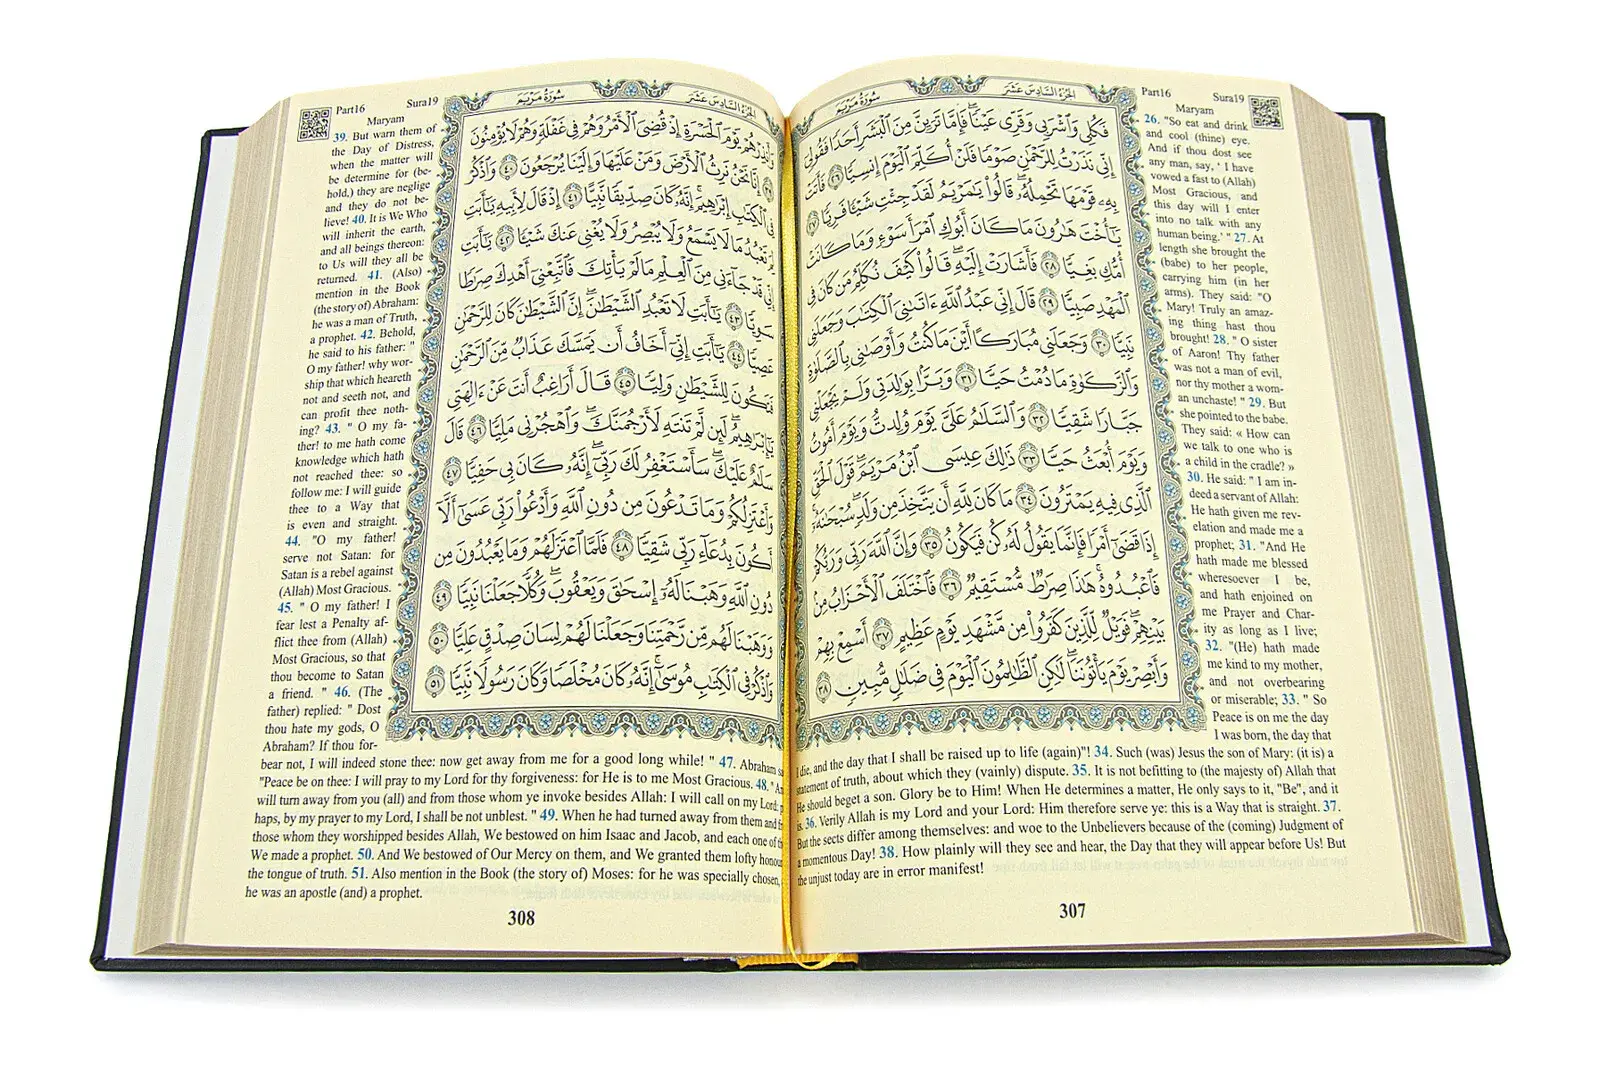 سُورَةُ مَرْيَم
الجُزءُ السَّادِسَ عَشَرَ
فَكُلِى وَٱشْرَبِى وَقَرِّى عَيْنًا ۖ فَإِمَّا تَرَيِنَّ مِنَ ٱلْبَشَرِ أَحَدًا فَقُولِىٓ
إِنِّى نَذَرْتُ لِلرَّحْمَٰنِ صَوْمًا فَلَنْ أُكَلِّمَ ٱلْيَوْمَ إِنسِيًّا ٢٦ فَأَتَتْ
بِهِۦ قَوْمَهَا تَحْمِلُهُۥ ۖ قَالُوا۟ يَٰمَرْيَمُ لَقَدْ جِئْتِ شَيْـًٔا فَرِيًّا ٢٧
يَٰٓأُخْتَ هَٰرُونَ مَا كَانَ أَبُوكِ ٱمْرَأَ سَوْءٍ وَمَا كَانَتْ
أُمُّكِ بَغِيًّا ٢٨ فَأَشَارَتْ إِلَيْهِ ۖ قَالُوا۟ كَيْفَ نُكَلِّمُ مَن كَانَ فِى
ٱلْمَهْدِ صَبِيًّا ٢٩ قَالَ إِنِّى عَبْدُ ٱللَّهِ ءَاتَىٰنِىَ ٱلْكِتَٰبَ وَجَعَلَنِى
نَبِيًّا ٣٠ وَجَعَلَنِى مُبَارَكًا أَيْنَ مَا كُنتُ وَأَوْصَٰنِى بِٱلصَّلَوٰةِ
وَٱلزَّكَوٰةِ مَا دُمْتُ حَيًّا ٣١ وَبَرًّۢا بِوَٰلِدَتِى وَلَمْ يَجْعَلْنِى
جَبَّارًا شَقِيًّا ٣٢ وَٱلسَّلَٰمُ عَلَىَّ يَوْمَ وُلِدتُّ وَيَوْمَ أَمُوتُ
وَيَوْمَ أُبْعَثُ حَيًّا ٣٣ ذَٰلِكَ عِيسَى ٱبْنُ مَرْيَمَ ۚ قَوْلَ ٱلْحَقِّ
ٱلَّذِى فِيهِ يَمْتَرُونَ ٣٤ مَا كَانَ لِلَّهِ أَن يَتَّخِذَ مِن وَلَدٍ ۖ سُبْحَٰنَهُۥٓ ۚ
إِذَا قَضَىٰٓ أَمْرًا فَإِنَّمَا يَقُولُ لَهُۥ كُن فَيَكُونُ ٣٥ وَإِنَّ ٱللَّهَ رَبِّى وَرَبُّكُمْ
فَٱعْبُدُوهُ ۚ هَٰذَا صِرَٰطٌ مُّسْتَقِيمٌ ٣٦ فَٱخْتَلَفَ ٱلْأَحْزَابُ مِنۢ
بَيْنِهِمْ ۖ فَوَيْلٌ لِّلَّذِينَ كَفَرُوا۟ مِن مَّشْهَدِ يَوْمٍ عَظِيمٍ ٣٧ أَسْمِعْ بِهِمْ
وَأَبْصِرْ يَوْمَ يَأْتُونَنَا ۖ لَٰكِنِ ٱلظَّٰلِمُونَ ٱلْيَوْمَ فِى ضَلَٰلٍ مُّبِينٍ ٣٨
Part16 Sura19
Maryam
26. "So eat and drink
and cool (thine) eye.
And if thou dost see
any man, say, ' I have
vowed a fast to (Allah)
Most Gracious, and
this day will I enter
into no talk with any
human being.' " 27. At
length she brought the
(babe) to her people,
carrying him (in her
arms). They said: "O
Mary! Truly an amaz-
ing thing hast thou
brought! 28. " O sister
of Aaron! Thy father
was not a man of evil,
nor thy mother a wom-
an unchaste! " 29. But
she pointed to the babe.
They said: « How can
we talk to one who is
a child in the cradle? »
30. He said: " I am in-
deed a servant of Allah:
He hath given me rev-
elation and made me a
prophet; 31. "And He
hath made me blessed
wheresoever I be,
and hath enjoined on
me Prayer and Char-
ity as long as I live;
32. "(He) hath made
me kind to my mother,
and not overbearing
or miserable; 33. " So
Peace is on me the day
I was born, the day that
I die, and the day that I shall be raised up to life (again)"! 34. Such (was) Jesus the son of Mary: (it is) a
statement of truth, about which they (vainly) dispute. 35. It is not befitting to (the majesty of) Allah that
He should beget a son. Glory be to Him! When He determines a matter, He only says to it, "Be", and it
is. 36. Verily Allah is my Lord and your Lord: Him therefore serve ye: this is a Way that is straight. 37.
But the sects differ among themselves: and woe to the Unbelievers because of the (coming) Judgment of
a momentous Day! 38. How plainly will they see and hear, the Day that they will appear before Us! But
the unjust today are in error manifest!
307
سُورَةُ مَرْيَم
الجُزءُ السَّادِسَ عَشَرَ
وَأَنذِرْهُمْ يَوْمَ ٱلْحَسْرَةِ إِذْ قُضِىَ ٱلْأَمْرُ وَهُمْ فِى غَفْلَةٍ وَهُمْ لَا يُؤْمِنُونَ
٣٩ إِنَّا نَحْنُ نَرِثُ ٱلْأَرْضَ وَمَنْ عَلَيْهَا وَإِلَيْنَا يُرْجَعُونَ ٤٠ وَٱذْكُرْ
فِى ٱلْكِتَٰبِ إِبْرَٰهِيمَ ۚ إِنَّهُۥ كَانَ صِدِّيقًا نَّبِيًّا ٤١ إِذْ قَالَ لِأَبِيهِ يَٰٓأَبَتِ
لِمَ تَعْبُدُ مَا لَا يَسْمَعُ وَلَا يُبْصِرُ وَلَا يُغْنِى عَنكَ شَيْـًٔا ٤٢ يَٰٓأَبَتِ
إِنِّى قَدْ جَآءَنِى مِنَ ٱلْعِلْمِ مَا لَمْ يَأْتِكَ فَٱتَّبِعْنِىٓ أَهْدِكَ صِرَٰطًا
سَوِيًّا ٤٣ يَٰٓأَبَتِ لَا تَعْبُدِ ٱلشَّيْطَٰنَ ۖ إِنَّ ٱلشَّيْطَٰنَ كَانَ لِلرَّحْمَٰنِ
عَصِيًّا ٤٤ يَٰٓأَبَتِ إِنِّىٓ أَخَافُ أَن يَمَسَّكَ عَذَابٌ مِّنَ ٱلرَّحْمَٰنِ
فَتَكُونَ لِلشَّيْطَٰنِ وَلِيًّا ٤٥ قَالَ أَرَاغِبٌ أَنتَ عَنْ ءَالِهَتِى
يَٰٓإِبْرَٰهِيمُ ۖ لَئِن لَّمْ تَنتَهِ لَأَرْجُمَنَّكَ ۖ وَٱهْجُرْنِى مَلِيًّا ٤٦ قَالَ
سَلَٰمٌ عَلَيْكَ ۖ سَأَسْتَغْفِرُ لَكَ رَبِّىٓ ۖ إِنَّهُۥ كَانَ بِى حَفِيًّا ٤٧
وَأَعْتَزِلُكُمْ وَمَا تَدْعُونَ مِن دُونِ ٱللَّهِ وَأَدْعُوا۟ رَبِّى عَسَىٰٓ أَلَّآ
أَكُونَ بِدُعَآءِ رَبِّى شَقِيًّا ٤٨ فَلَمَّا ٱعْتَزَلَهُمْ وَمَا يَعْبُدُونَ مِن
دُونِ ٱللَّهِ وَهَبْنَا لَهُۥٓ إِسْحَٰقَ وَيَعْقُوبَ ۖ وَكُلًّا جَعَلْنَا نَبِيًّا ٤٩
وَوَهَبْنَا لَهُم مِّن رَّحْمَتِنَا وَجَعَلْنَا لَهُمْ لِسَانَ صِدْقٍ عَلِيًّا ٥٠
وَٱذْكُرْ فِى ٱلْكِتَٰبِ مُوسَىٰٓ ۚ إِنَّهُۥ كَانَ مُخْلَصًا وَكَانَ رَسُولًا نَّبِيًّا ٥١
Part16 Sura19
Maryam
39. But warn them of
the Day of Distress,
when the matter will
be determine for (be-
hold,) they are neglige
and they do not be-
lieve! 40. It is We Who
will inherit the earth,
and all beings thereon:
to Us will they all be
returned. 41. (Also)
mention in the Book
(the story of) Abraham:
he was a man of Truth,
a prophet. 42. Behold,
he said to his father: "
O my father! why wor-
ship that which heareth
not and seeth not, and
can profit thee noth-
ing? 43. " O my fa-
ther! to me hath come
knowledge which hath
not reached thee: so
follow me: I will guide
thee to a Way that
is even and straight.
44. "O my father!
serve not Satan: for
Satan is a rebel against
(Allah) Most Gracious.
45. " O my father! I
fear lest a Penalty af-
flict thee from (Allah)
Most Gracious, so that
thou become to Satan
a friend. " 46. (The
father) replied: " Dost
thou hate my gods, O
Abraham? If thou for-
bear not, I will indeed stone thee: now get away from me for a good long while! " 47. Abraham
"Peace be on thee: I will pray to my Lord for thy forgiveness: for He is to me Most Gracious. 48. "
will turn away from you (all) and from those whom ye invoke besides Allah: I will call on my Lord:
haps, by my prayer to my Lord, I shall be not unblest. " 49. When he had turned away from them and
those whom they worshipped besides Allah, We bestowed on him Isaac and Jacob, and each one of
We made a prophet. 50. And We bestowed of Our Mercy on them, and We granted them lofty honou
the tongue of truth. 51. Also mention in the Book (the story of) Moses: for he was specially chosen,
he was an apostle (and) a prophet.
308